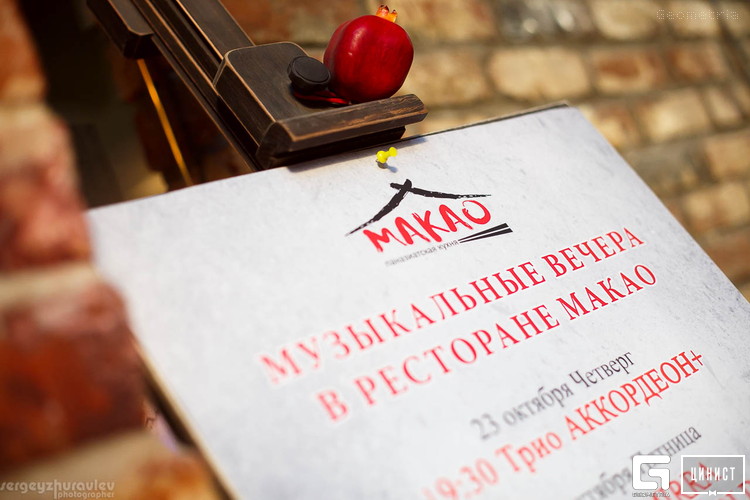 Geometria
МАКАО
паназиатская кухня
МУЗЫКАЛЬНЫЕ ВЕЧЕРА
В РЕСТОРАНЕ МАКАО
23 октября Четверг
19:30 Трио АККОРДЕОН+
октября Пятница
sergeyzhuravlev
photographer
ЦИНИСТ